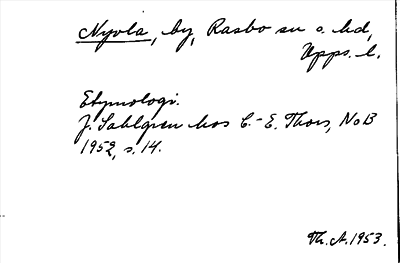 Nyvla, by, Rasbo sn o. hd,
Upps. l.
Etymologi.
J. Sahlgren hos C.-E. Thors, NoB
1952, s. 14.
Th. A. 1953.